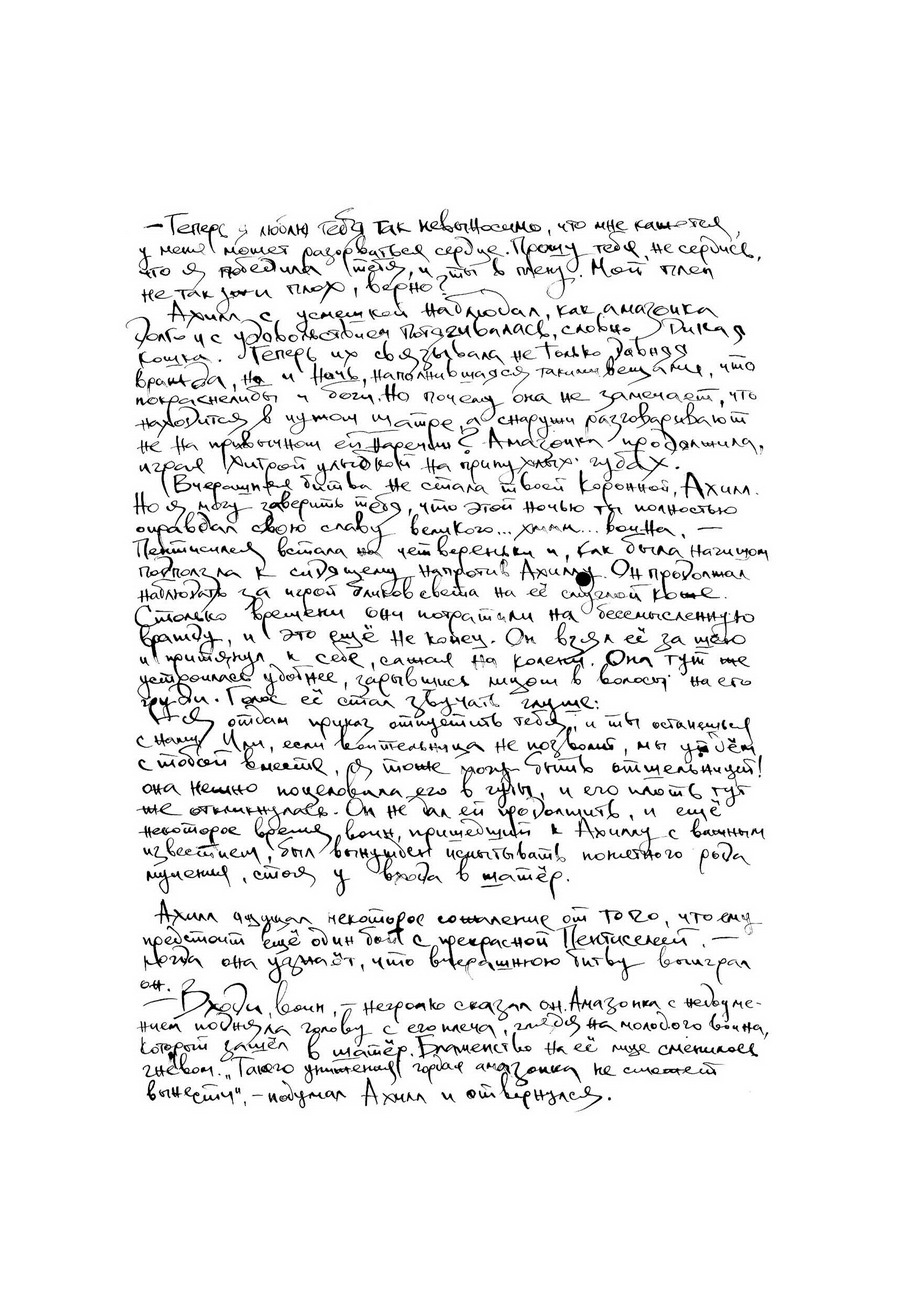 — Теперь я люблю тебя так невыносимо, что мне кажется,
у меня может разорваться сердце. Прошу тебя, не сердись,
что я победила тебя, и ты в плену. Мой плен
не так уж и плох, верно?
Ахилл с усмешкой наблюдал, как амазонка
долго и с удовольствием потягивалась, словно дикая
кошка. Теперь их связывала не только давняя
вражда, но и ночь, наполнившаяся такими вещами, что
покраснели бы и боги. Но почему она не замечает, что
находится в чужом шатре, а снаружи разговаривают
не на привычном ей наречии? Амазонка продолжила,
играя хитрой улыбкой на припухлых губах.
Вчерашняя битва не стала твоей коронной, Ахилл.
Но я могу заверить тебя, что этой ночью ты полностью
оправдал свою славу великого... хммм... воина. —
Пентисилея встала на четвереньки и, как была нагишом
подползла к сидящему напротив Ахиллу. Он продолжал
наблюдать за игрой бликов света на её смуглой коже.
Столько времени они потратили на бессмысленную
вражду, и это ещё не конец. Он взял её за шею
и притянул к себе, сажая на колени. Она тут же
устроилась удобнее, зарывшись лицом в волосы на его
груди. Голос её стал звучать глуше:
— Я отдам приказ отпустить тебя, и ты останешься
с нами. Или, если воительница не позволит, мы уйдём
с тобой вместе, я тоже могу быть отшельницей!
она нежно поцеловала его в губы, и его плоть тут
же откликнулась. Он не дал ей продолжить, и ещё
некоторое время воин, пришедший к Ахиллу с важным
известием, был вынужден испытывать понятного рода
мучения, стоя у входа в шатёр.
Ахилл ощущал некоторое сожаление от того, что ему
предстоит ещё один бой с прекрасной Пентиселеей. —
когда она узнаёт, что вчерашнюю битву выиграл
он.
— Входи, воин, — негромко сказал он. Амазонка с недоуме-
нием подняла голову с его плеча, глядя на молодого воина,
который зашёл в шатёр. Блаженство на её лице сменилось
гневом. „Такого унижения гордая амазонка не сможет
вынести", — подумал Ахилл и отвернулся.